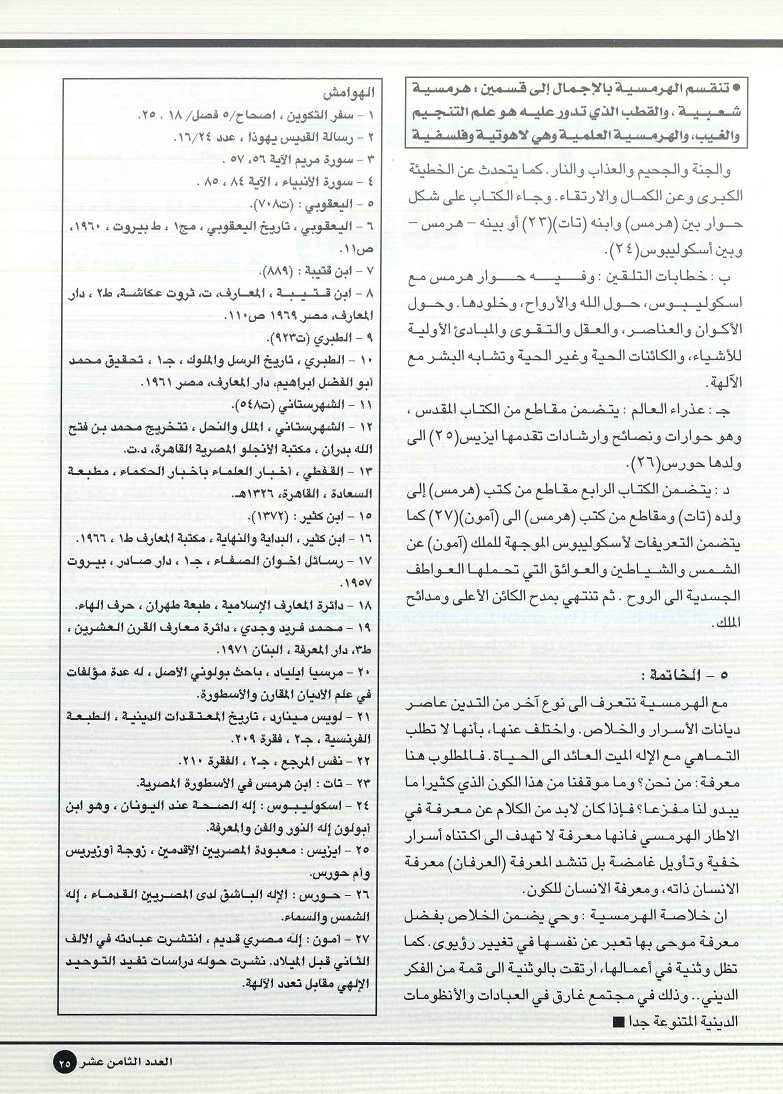 ● تنقسم الهرمسية بالإجمال إلى قسمين : هرمسية
شعبية ، والقطب الذي تدور عليه هو علم التنجيم
والغيب، والهرمسية العلمية وهي لاهوتية وفلسفية
والجنة والجحيم والعذاب والنار. كما يتحدث عن الخطيئة
الكبرى وعن الكمال والارتقاء. وجاء الكتاب على شكل
حوار بين (هرمس) وابنه (تات)(٢٣) أو بينه – هرمس –
وبين أسكوليبوس(٢٤).
ب : خطابات التلقين : وفيه حوار هرمس مع
اسكوليبوس، حول الله والأرواح، وخلودها. وحول
الأكوان والعناصر، والعقل والتقوى والمبادئ الأولية
للأشياء، والكائنات الحية وغير الحية وتشابه البشر مع
الآلهة.
جـ : عذراء العالم : يتضمن مقاطع من الكتاب المقدس ،
وهو حوارات ونصائح وارشادات تقدمها ايزيس(٢٥) الى
ولدها حورس(٢٦).
د : يتضمن الكتاب الرابع مقاطع من كتب (هرمس) إلى
ولده (تات) ومقاطع من كتب (هرمس) الى (آمون)(٢٧) كما
يتضمن التعريفات لأسكوليبوس الموجهة للملك (آمون) عن
الشمس والشياطين والعوائق التي تحملها العواطف
الجسدية الى الروح . ثم تنتهي بمدح الكائن الأعلى ومدائح
الملك.
٥ – الخاتمة :
مع الهرمسية نتعرف الى نوع آخر من التدين عاصر
ديانات الأسرار والخلاص. واختلف عنها، بأنها لا تطلب
التماهي مع الإله الميت العائد الى الحياة. فالمطلوب هنا
معرفة : من نحن؟ وما موقفنا من هذا الكون الذي كثيرا ما
يبدو لنا مفزعا؟ فإذا كان لابد من الكلام عن معرفة في
الاطار الهرمسي فانها معرفة لا تهدف الى اكتناه أسرار
خفية وتأويل غامضة بل تنشد المعرفة (العرفان) معرفة
الانسان ذاته، ومعرفة الانسان للكون.
ان خلاصة الهرمسية : وحي يضمن الخلاص بفضل
معرفة موحى بها تعبر عن نفسها في تغيير رؤيوى. كما
تظل وثنية في أعمالها، ارتقت بالوثنية الى قمة من الفكر
الديني.. وذلك في مجتمع غارق في العبادات والأنظومات
الدينية المتنوعة جدا ■
الهوامش
١ – سفر التكوين ، اصحاح/٥ فصل/ ١٨ . ٢٥.
٢ – رسالة القديس يهوذا ، عدد ١٦/٢٤.
٣ – سورة مريم الآية ٥٦، ٥٧ .
٤ – سورة الأنبياء ، الآية ٨٤ ، ٨٥ .
٥ – اليعقوبي : (ت٧٠٨).
٦ – اليعقوبي ، تاريخ اليعقوبي ، مج١ ، ط بيروت ، ١٩٦٠،
ص١١.
٧ – ابن قتيبة : (٨٨٩).
٨ – ابن قتيبة ، المعارف، ت، ثروت عكاشة، ط٢ ، دار
المعارف، مصر ١٩٦٩ ص١١٠.
٩ – الطبري (ت٩٢٣).
١٠ – الطبري ، تاريخ الرسل والملوك ، جـ١ ، تحقيق محمد
أبو الفضل ابراهيم، دار المعارف، مصر ١٩٦١.
١١ – الشهرستاني (ت٥٤٨).
١٢ – الشهرستاني ، الملل والنحل ، تتخريج محمد بن فتح
الله بدران ، مكتبة الأنجلو المصرية القاهرة، د.ت.
١٣ – القفطي ، اخبار العلماء بأخبار الحكماء ، مطبعة
السعادة ، القاهرة، ١٣٢٦هـ.
١٥ – ابن كثير : (١٣٧٢).
١٦ – ابن كثير ، البداية والنهاية ، مكتبة المعارف ط١ ، ١٩٦٦.
١٧ – رسائل اخوان الصفاء ، جـ١ ، دار صادر ، بيروت
١٩٥٧.
١٨ – دائرة المعارف الإسلامية ، طبعة طهران ، حرف الهاء.
١٩ – محمد فريد وجدي ، دائرة معارف القرن العشرين ،
ط٣، دار المعرفة ، البنان ١٩٧١.
٢٠ – مرسيا ايلياد ، باحث بولوني الأصل ، له عدة مؤلفات
في علم الأديان المقارن والأسطورة.
٢١ – لويس مينارد ، تاريخ المعتقدات الدينية ، الطبعة
الفرنسية ، جـ٢ ، فقرة ٢٠٩.
٢٢ – نفس المرجع ، جـ٢ ، الفقرة ٢١٠.
٢٣ – تات : ابن هرمس في الأسطورة المصرية.
٢٤ – اسكوليبوس : إله الصحة عند اليونان ، وهو ابن
أبولون إله النور والفن والمعرفة.
٢٥ – ايزيس : معبودة المصريين الأقدمين ، زوجة أوزيريس
وأم حورس.
٢٦ – حورس : الإله الباشق لدى المصريين القدماء ، إله
الشمس والسماء.
٢٧ – آمون : إله مصري قديم ، انتشرت عبادته في الألف
الثاني قبل الميلاد. نشرت حوله دراسات تفيد التوحيد
الإلهي مقابل تعدد الآلهة.
العدد الثامن عشر ٢٥